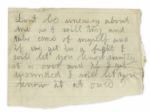 Dont be uneasy about
me as I will try and
take care of myself and
if we get in a fight I
will let you hear directly
it is over and if I get
wounded I will let you
know at once